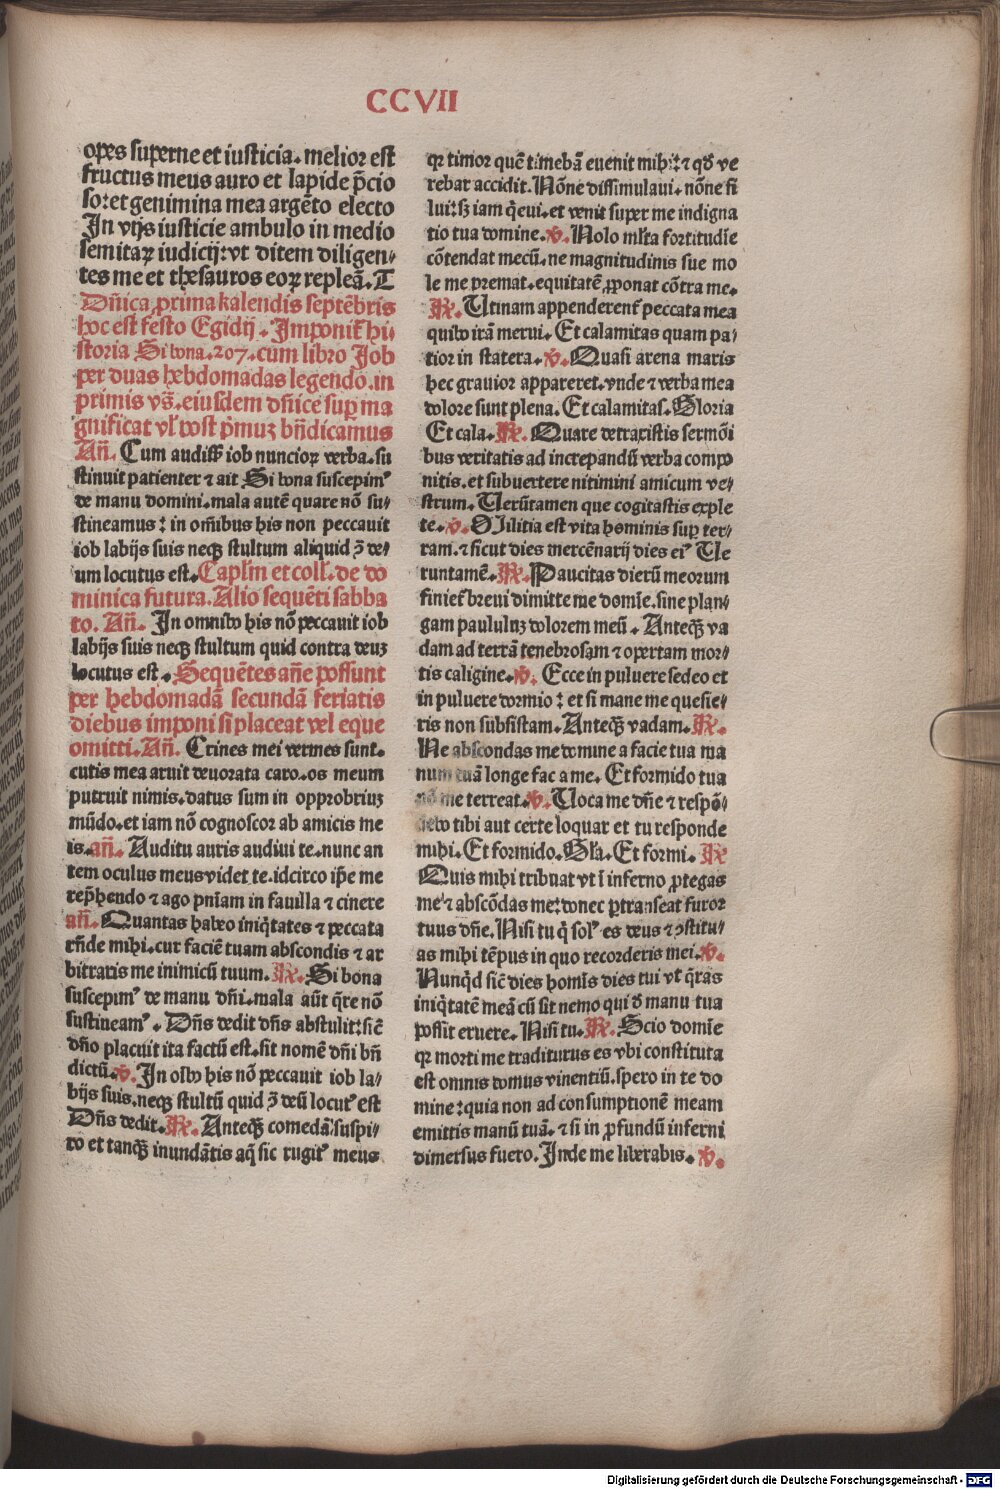 CCVII
opes superne et iusticia. melior est
fructus meus auro et lapide p̄cio
so: et genimina mea argēto electo
In vijs iusticie ambulo in medio
semitaꝝ iudicij: vt ditem diligen⸗
tes me et thesauros eoꝝ repleā. T
Dn̄ica prima kalendis septēbris
hoc est festo Egidij. Imponit᷑ hi⸗
storia Si bona. 207. cum libro Job
per duas hebdomadas legendo. in
primis vs̄. eiusdem dn̄ice sup ma
gnificat vl' post p̄muꝫ bn̄dicamus
An̄. Cum audiss; iob nuncioꝝ verba. su
stinuit patienter ⁊ ait Si bona suscepim⁹
de manu domini. mala autē quare nō su⸗
stineamus: in om̄ibus his non peccauit
iob labijs suis neqꝫ stultum aliquid ↄ̄ de⸗
um locutus est. Capl'm et coll'. de do
minica futura. Alio sequēti sabba
to. An̄. In omnibꝰ his nō peccauit iob
labijs suis neqꝫ stultum quid contra deuꝫ
locutus est. Sequētes an̄e possunt
per hebdomadā secundā feriatis
diebus imponi si placeat vel eque
omitti. An̄. Crines mei vermes sunt.
cutis mea aruit deuorata caro. os meum
putruit nimis. datus sum in opprobriuꝫ
mūdo. et iam nō cognoscor ab amicis me
is. an̄. Auditu auris audiui te. nunc an
tem oculus meus videt te. idcirco ip̄e me
rep̄hendo ⁊ ago pn̄iam in fauilla ⁊ cinere
an̄. Quantas habeo iniq̇tates ⁊ peccata
rn̄de mihi. cur faciē tuam abscondis ⁊ ar
bitraris me inimicū tuum. ℟. Si bona
suscepim⁹ de manu dn̄i. mala aūt q̄re nō
sustineam⁹. Dn̄s dedit dn̄s abstulit: sic̄
dn̄o placuit ita factū est. sit nomē dn̄i bn̄
dictū. ℣. In oībꝰ his nō peccauit iob la⸗
bijs suis. neqꝫ stultū quid ↄ̄ deū locut⁹ est
Dn̄s dedit. ℟. Anteqꝫ comedā suspi⸗
ro et tanqꝫ inundātis aq̄ sic rugit⁹ meus
qꝛ timor quē timebā euenit mihi: ⁊ qđ ve
rebar accidit. Nōne dissimulaui. nōne si
lui: sꝫ iam q̇eui. et venit super me indigna
tio tua domine. ℣. Nolo ml'ta fortitudīe
cōtendat mecū. ne magnitudinis sue mo
le me premat. equitatē ꝓponat cōtra me.
℟. Utinam appenderent᷑ peccata mea
quibꝰ irā merui. Et calamitas quam pa⸗
tior in statera. ℣. Quasi arena maris
hec grauior appareret. vnde ⁊ verba mea
dolore sunt plena. Et calamitas. Gloria
Et cala. ℟. Quare detraxistis sermōi
bus veritatis ad increpandū verba compo
nitis. et subuertere nitimini amicum ve⸗
strum. Uerūtamen que cogitastis exple
te. ℣. Militia est vita hominis sup ter⸗
ram. ⁊ sicut dies mercēnarij dies ei⁹ Ue
runtamē. ℟. Paucitas dierū meorum
finiet᷑ breui dimitte me domīe. sine plan⸗
gam paululuꝫ dolorem meū. Anteqꝫ va
dam ad terrā tenebrosam ⁊ opertam mor⸗
tis caligine. ℣. Ecce in puluere sedeo et
in puluere dormio: et si mane me quesie⸗
ris non subsistam. Anteqꝫ vadam. ℟.
Ne abscondas me domine a facie tua ma
num tuā longe fac a me. Et formido tua
nō me terreat. ℣. Uoca me dn̄e ⁊ respō⸗
debo tibi aut certe loquar et tu responde
mihi. Et formido. Gl'a. Et formi. ℟
Quis mihi tribuat vt ī inferno ꝓtegas
me ⁊ abscōdas me: donec ꝑtranseat furor
tuus dn̄e. Nisi tu q̇ sol⁹ es deus ⁊ ꝯstitu⸗
as mihi tēpus in quo recorderis mei. ℣.
Nunq̇d sic̄ dies homīs dies tui vt q̄ras
iniq̇tatē meā cū sit nemo qui đ manu tua
possit eruere. Nisi tu. ℟. Scio domīe
qꝛ morti me traditurus es vbi constituta
est omnis domus viuentiū. spero in te do
mine: quia non ad consumptionē meam
emittis manū tuā. ⁊ si in ꝓfundū inferni
dimersus fuero. Inde me liberabis. ℣.
Digitalisierung gefördert durch die Deutsche Forschungsgemeinschaft - DFG